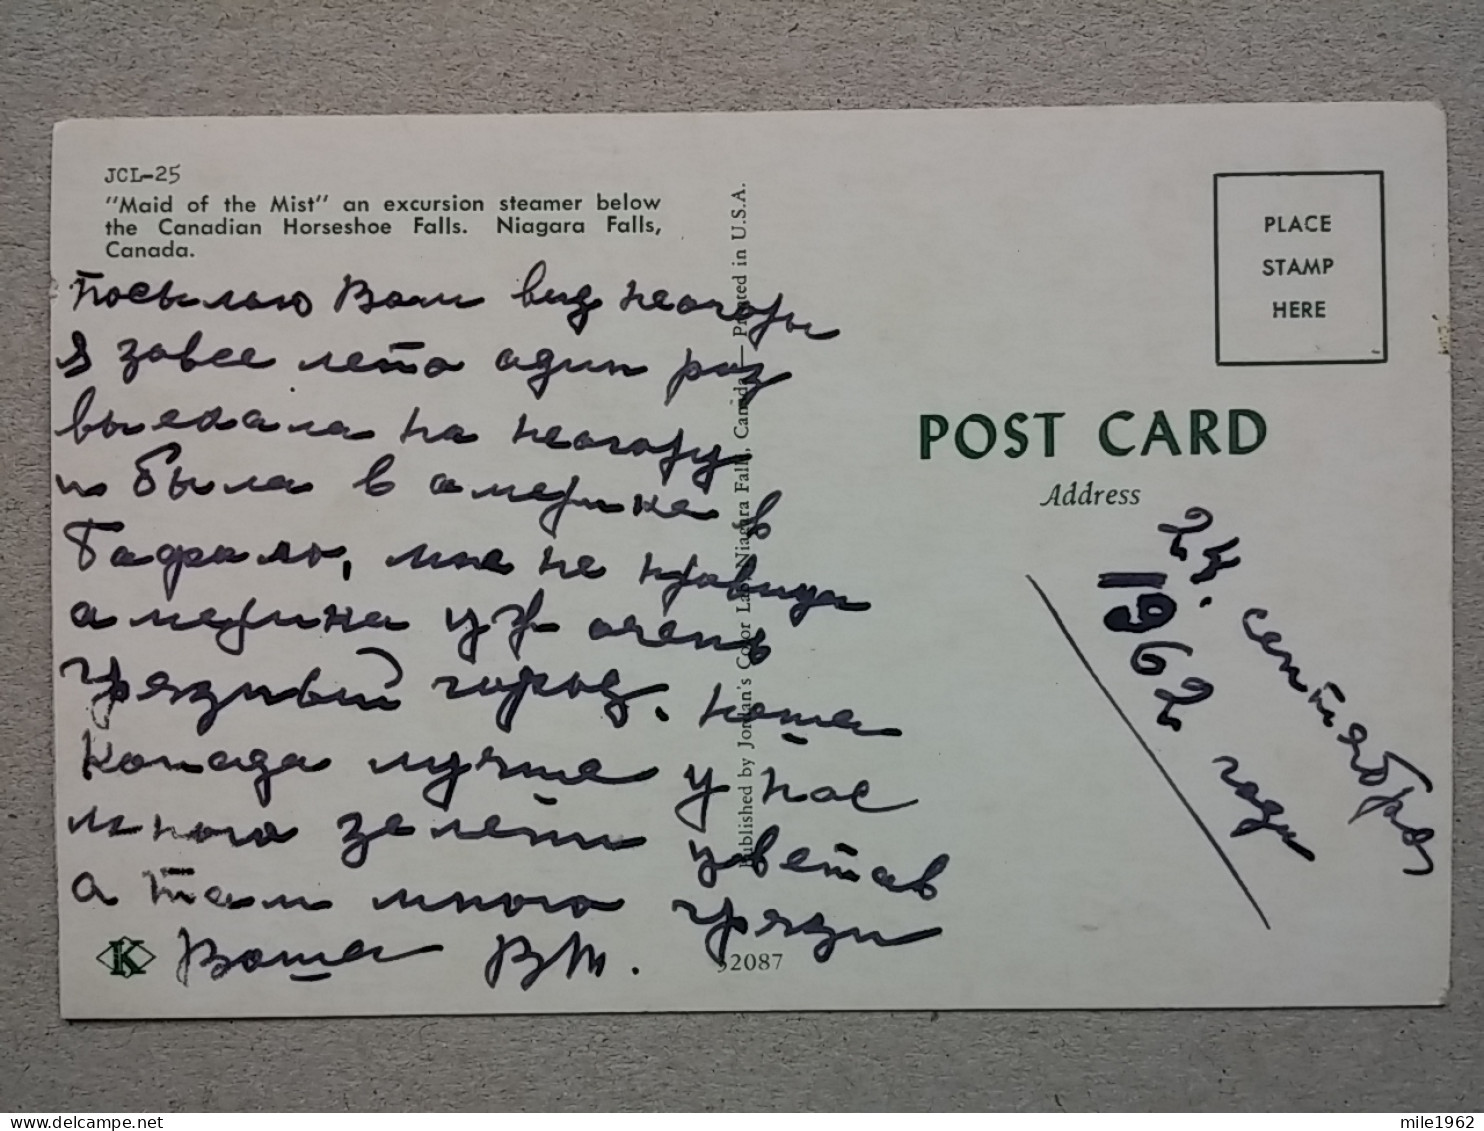 JCL-25
"Maid of the Mist" an excursion steamer below
the Canadian Horseshoe Falls. Niagara Falls,
Canada.
Посылаю Вам вид неогоры
Я завсе лето адин раз
выехала на неогору
и была в америке в
Бафрало, мне не правица
америка уж очень
грязный город. наша
Канада лучше у нас
много зелени цветав
а там много грязи
Ваша ВТ.
K
52087
Published by Jordan's Color Lab, Niagara Falls, Canada — Printed in U.S.A.
PLACE
STAMP
HERE
POST CARD
Address
сентября
1962 года
mile1962